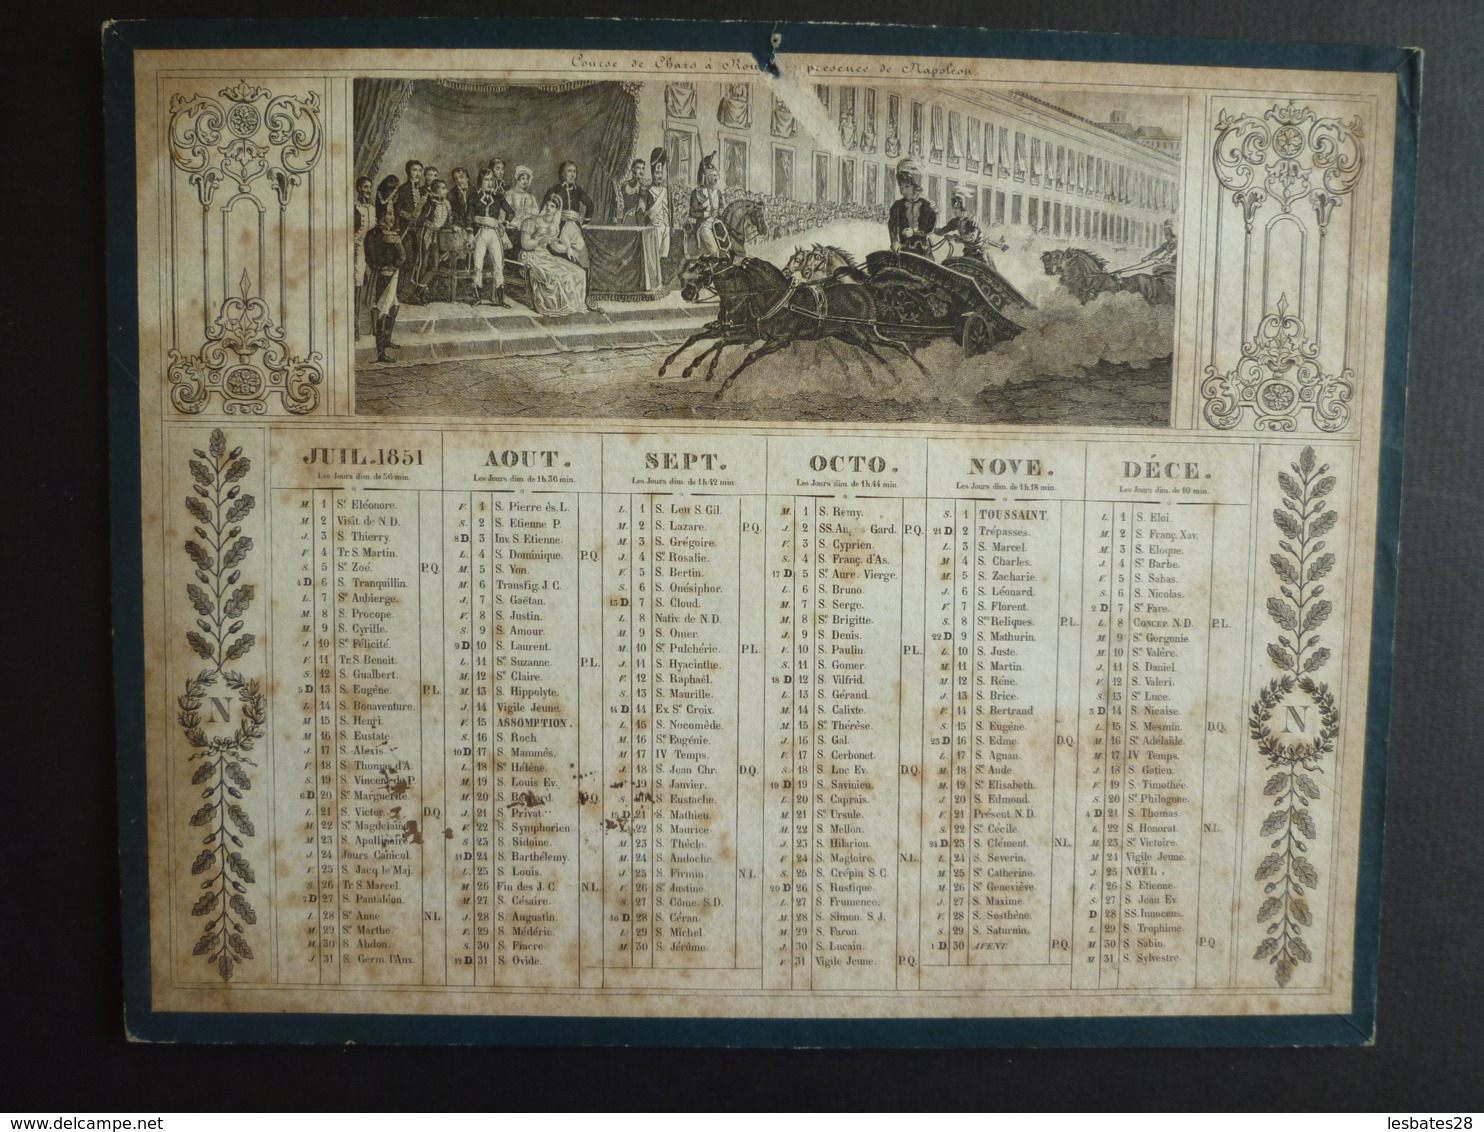 Course de Chars à presence de Napoléon.
JUIL.1851
Les Jours dim. de 56 min.
M. 1 Ste Eléonore.
M. 2 Visit. de N.D.
J. 3 S. Thierry.
F. 4 Tr. S. Martin.
S. 5 Ste Zoé. P.Q.
4 D 6 S. Tranquillin.
L. 7 Ste Aubierge.
M. 8 S. Procope.
M. 9 S. Cyrille.
J. 10 Ste Félicité.
F. 11 Tr. S. Benoit.
S. 12 S. Gualbert.
5 D 13 S. Eugène. P.L.
L. 14 S. Bonaventure.
M. 15 S. Henri.
M. 16 S. Eustate.
J. 17 S. Alexis.
F. 18 S. Thomas d'A.
S. 19 S. Vincent de P.
6 D 20 Ste Marguerite.
L. 21 S. Victor. D.Q.
M. 22 Ste Magdelaine
M. 23 S. Apollinaire
J. 24 Jours Canicul.
F. 25 S. Jacq. le Maj.
S. 26 Tr. S. Marcel.
7 D 27 S. Pantaléon.
L. 28 Ste Anne N.L.
M. 29 Ste Marthe.
M. 30 S. Abdon.
J. 31 S. Germ. l'Aux.
AOUT.
Les Jours dim. de 1h 36 min.
F. 1 S. Pierre ès. L.
S. 2 S. Etienne P.
8 D 3 Inv. S. Etienne.
L. 4 S. Dominique. P.Q.
M. 5 S. Yon.
M. 6 Transfig. J. C.
J. 7 S. Gaëtan.
F. 8 S. Justin.
S. 9 S. Amour.
9 D 10 S. Laurent.
L. 11 Ste Suzanne. P.L.
M. 12 Ste Claire.
M. 13 S. Hippolyte.
J. 14 Vigile Jeune.
F. 15 ASSOMPTION.
S. 16 S. Roch
10 D 17 S. Mammès.
L. 18 Ste Hélène.
M. 19 S. Louis Ev.
M. 20 S. Bernard. P.Q.
J. 21 S. Privat.
F. 22 S. Symphorien
S. 23 S. Sidoine.
11 D 24 S. Barthélemy.
L. 25 S. Louis.
M. 26 Fin des J. C. N.L.
M. 27 S. Césaire.
J. 28 S. Augustin.
F. 29 S. Médéric.
S. 30 S. Fiacre.
12 D 31 S. Ovide.
SEPT.
Les Jours dim. de 1h 42 min.
L. 1 S. Leu S. Gil.
M. 2 S. Lazare. P.Q.
M. 3 S. Grégoire.
J. 4 Ste Rosalie.
F. 5 S. Bertin.
S. 6 S. Onésiphor.
13 D 7 S. Cloud.
L. 8 Nativ. de N.D.
M. 9 S. Omer.
M. 10 Ste Pulchérie. P.L.
J. 11 S. Hyacinthe.
F. 12 S. Raphaël.
S. 13 S. Maurille.
14 D 14 Ex. Ste Croix.
L. 15 S. Nocomède.
M. 16 Ste Eugénie.
M. 17 IV Temps.
J. 18 S. Jean Chr. D.Q.
19 S. Janvier.
S. S. Eustache.
D 21 S. Mathieu.
22 S. Maurice.
M. 23 S. Thècle.
M. 24 S. Andoche.
J. 25 S. Firmin. N.L.
F. 26 Ste Justine.
S. 27 S. Côme. S.D.
16 D 28 S. Céran.
L. 29 S. Michel.
M. 30 S. Jérôme.
OCTO.
Les Jours dim. de 1h.44 min.
M. 1 S. Remy.
J. 2 SS. Anges Gard. P.Q.
F. 3 S. Cyprien.
S. 4 S. Franç. d'As.
17 D 5 Ste Aure. Vierge.
L. 6 S. Bruno.
M. 7 S. Serge.
M. 8 Ste Brigitte.
J. 9 S. Denis.
F. 10 S. Paulin. P.L.
S. 11 S. Gomer.
18 D 12 S. Vilfrid.
L. 13 S. Gérand.
M. 14 S. Calixte.
M. 15 Ste Thérèse.
J. 16 S. Gal.
F. 17 S. Cerbonet.
S. 18 S. Luc Ev. D.Q.
19 D 19 S. Savinien.
L. 20 S. Caprais.
M. 21 Ste Ursule.
M. 22 S. Mellon.
J. 23 S. Hilarion.
F. 24 S. Magloire. N.L.
S. 25 S. Crépin S. C.
20 D 26 S. Rustique.
L. 27 S. Frumence.
M. 28 S. Simon. S.J.
M. 29 S. Faron.
J. 30 S. Lucain.
F. 31 Vigile Jeune. P.Q.
NOVE.
Les Jours dim. de 1h.18 min.
S. 1 TOUSSAINT.
21 D. 2 Trépasses.
L. 3 S. Marcel.
M. 4 S. Charles.
M. 5 S. Zacharie.
J. 6 S. Léonard.
F. 7 S. Florent.
S. 8 Stes Reliques. P.L.
22 D. 9 S. Mathurin.
L. 10 S. Juste.
M. 11 S. Martin.
M. 12 S. Réne.
J. 13 S. Brice.
F. 14 S. Bertrand
S. 15 S. Eugène.
23 D 16 S. Edme. D.Q.
L. 17 S. Agnan.
M. 18 Ste Aude.
M. 19 Ste Elisabeth.
J. 20 S. Edmond.
F. 21 Présent. N. D.
S. 22 Ste Cécile.
24 D. 23 S. Clément. N.L.
L. 24 S. Severin.
M. 25 Ste Catherine.
M. 26 Ste Geneviève.
J. 27 S. Maxime.
F. 28 S. Sosthène.
S. 29 S. Saturnin.
1 D. 30 AVENT. P.Q.
DÉCE.
Les Jours dim. de 10 min.
L. 1 S. Eloi.
M. 2 S. Franç. Xav.
M. 3 S. Eloque.
J. 4 Ste Barbe.
F. 5 S. Sabas.
S. 6 S. Nicolas.
2 D. 7 Ste Fare.
L. 8 CONCEP. N. D. P.L.
M. 9 Ste Gorgonie.
M. 10 Ste Valère.
J. 11 S. Daniel.
F. 12 S. Valeri.
S. 13 Ste Luce.
3 D 14 S. Nicaise.
L. 15 S. Mesmin. D.Q.
M. 16 Ste Adélaïde.
M. 17 IV Temps.
J. 18 S. Gatien.
F. 19 S. Timothée.
S. 20 Ste Philogone.
4 D 21 S. Thomas.
L. 22 S. Honorat. N.L.
M. 23 Ste Victoire.
M. 24 Vigile Jeune.
J. 25 NOËL.
F. 26 S. Etienne.
S. 27 S. Jean Ev.
D 28 SS. Innocens.
L. 29 S. Trophime.
M. 30 S. Sabin. P.Q.
M. 31 S. Sylvestre.
N
N
www.delcampe.net
lesbates28